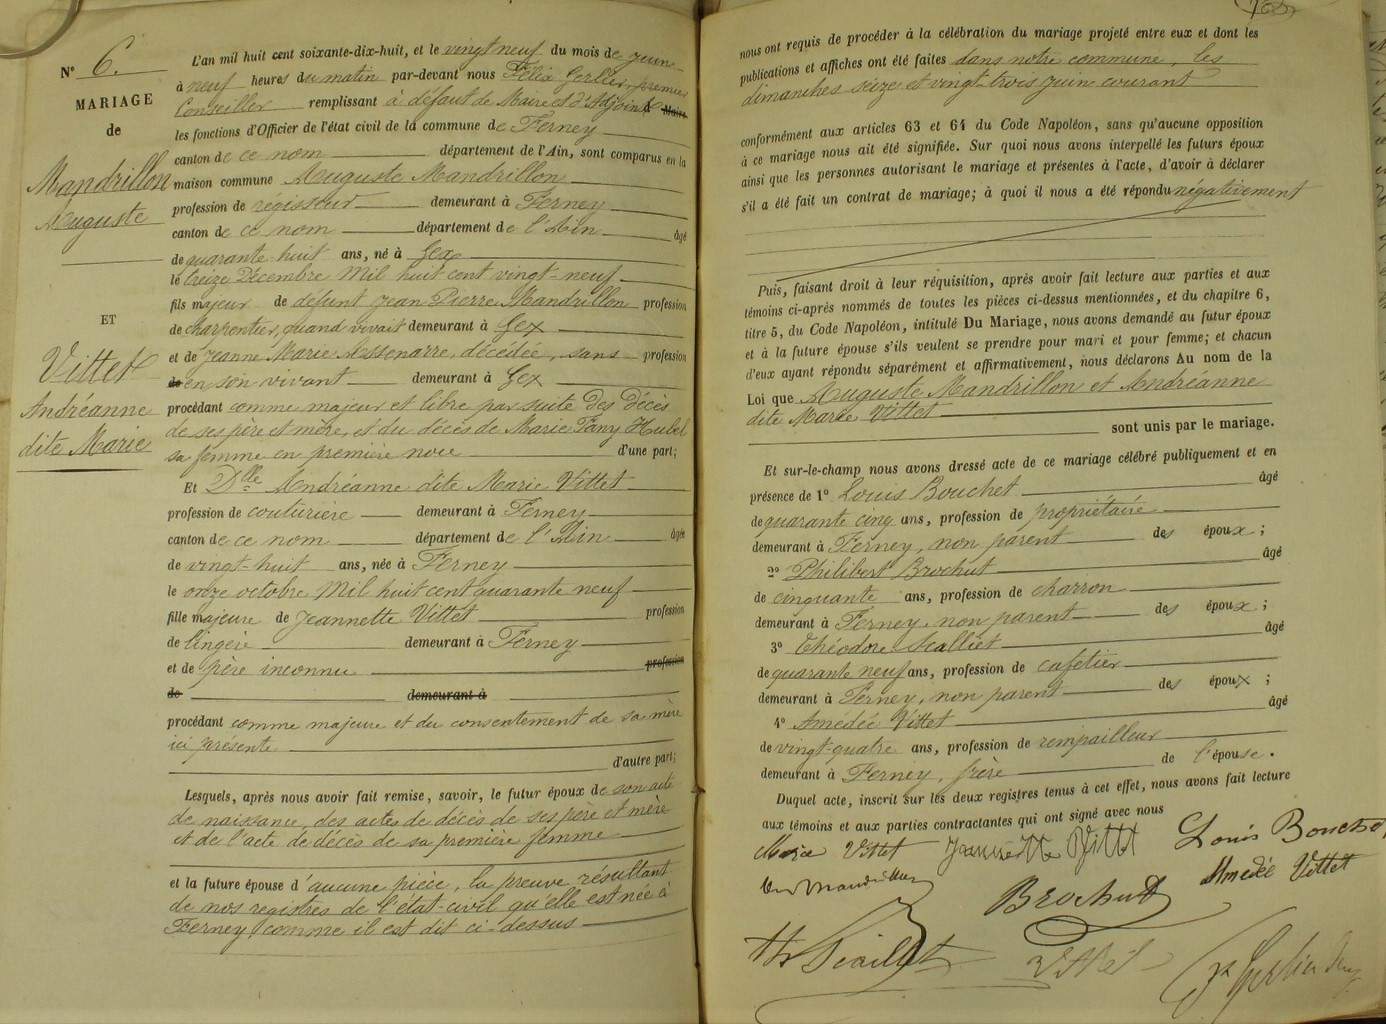 N° 6.
MARIAGE
de
Mandrillon
Auguste
ET
Vittet
Andréanne
dite Marie
L'an mil huit cent soixante-dix-huit, et le vingt neuf du mois de Juin
à neuf heures du matin par-devant nous Félix Gerlier, premier
Conseiller remplissant à défaut de Maire et d'Adjoint Maire
les fonctions d'Officier de l'état civil de la commune de Ferney
canton de ce nom département de l'Ain, sont comparus en la
maison commune Auguste Mandrillon
profession de régisseur demeurant à Ferney
canton de ce nom département de l'Ain âgé
de quarante-huit ans, né à Gex
le treize Décembre Mil huit cent vingt-neuf
fils majeur de défunt Jean Pierre Mandrillon profession
de charpentier, quand vivait demeurant à Gex
et de Jeanne Marie Assenarre, décédée, sans profession
de en son vivant demeurant à Gex
procédant comme majeur et libre par suite des décès
de ses père et mère, et du décès de Marie Fany Hubel
sa femme en première noce d'une part;
Et Dlle Andréanne dite Marie Vittet
profession de couturière demeurant à Ferney
canton de ce nom département de l'Ain âgée
de vingt-huit ans, née à Ferney
le onze octobre Mil huit cent quarante neuf
fille majeure de Jeannette Vittet profession
de lingère demeurant à Ferney
et de père inconnu profession
de demeurant à
procédant comme majeure et du consentement de sa mère
ici présente
d'autre part;
Lesquels, après nous avoir fait remise, savoir, le futur époux de son acte
de naissance, des actes de décès de ses père et mère
et de l'acte de décès de sa première femme
et la future épouse d'aucune pièce, la preuve résultant
de nos registres de l'état-civil qu'elle est née à
Ferney, comme il est dit ci-dessus
nous ont requis de procéder à la célébration du mariage projeté entre eux et dont les
publications et affiches ont été faites dans notre commune, les
dimanches seize et vingt-trois juin courant
conformément aux articles 63 et 64 du Code Napoléon, sans qu'aucune opposition
à ce mariage nous ait été signifiée. Sur quoi nous avons interpellé les futurs époux
ainsi que les personnes autorisant le mariage et présentes à l'acte, d'avoir à déclarer
s'il a été fait un contrat de mariage; à quoi il nous a été répondu négativement
Puis, faisant droit à leur réquisition, après avoir fait lecture aux parties et aux
témoins ci-après nommés de toutes les pièces ci-dessus mentionnées, et du chapitre 6,
titre 5, du Code Napoléon, intitulé Du Mariage, nous avons demandé au futur époux
et à la future épouse s'ils veulent se prendre pour mari et pour femme; et chacun
d'eux ayant répondu séparément et affirmativement, nous déclarons Au nom de la
Loi que Auguste Mandrillon et Andréanne
dite Marie Vittet
sont unis par le mariage.
Et sur-le-champ nous avons dressé acte de ce mariage célébré publiquement et en
présence de 1° Louis Bouchet âgé
de quarante cinq ans, profession de propriétaire
demeurant à Ferney, non parent des époux;
2° Philibert Brochut âgé
de cinquante ans, profession de charron
demeurant à Ferney, non parent des époux;
3° Théodore Scalliet âgé
de quarante neuf ans, profession de cafetier
demeurant à Ferney, non parent des époux;
4° Amédée Vittet âgé
de vingt-quatre ans, profession de rempailleur
demeurant à Ferney, frère de l'épouse.
Duquel acte, inscrit sur les deux registres tenus à cet effet, nous avons fait lecture
aux témoins et aux parties contractantes qui ont signé avec nous
Marie Vittet Jeannette Vittet Louis Bouchet
Mandrillon Brochut Amédée Vittet
Th Scalliet Vittet Gerlier